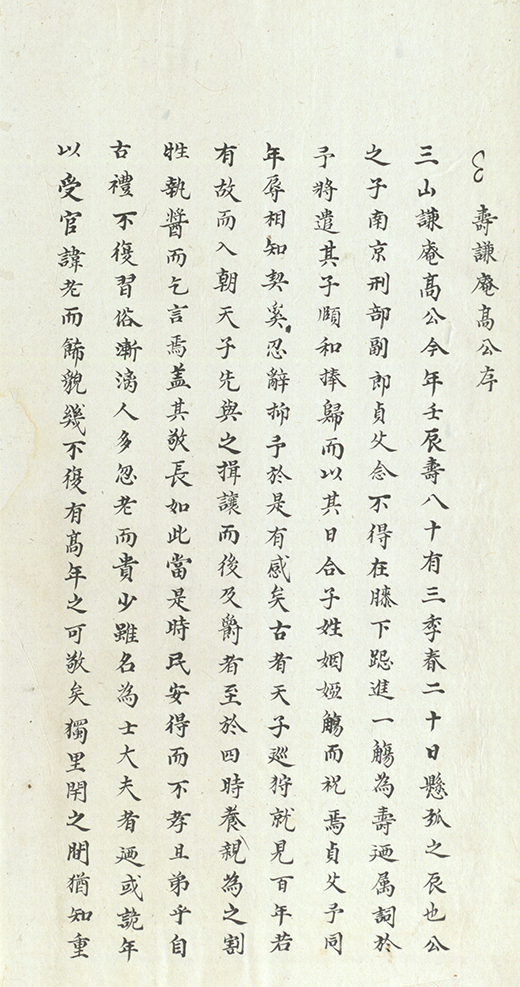 壽謙庵髙公序
三山謙庵髙公今年壬辰壽八十有三季春二十日懸弧之辰也公
之子南京刑部副郎貞父念不得在膝下跽進一觴為壽廼属詞於
予將遣其子頤和捧歸而以其日合子姓姻婭觴而祝焉貞父予同
年辱相知契奚忍辭抑予於是有感矣古者天子廵狩就見百年若
有故而入朝天子先與之揖讓而後及爵者至於四時養親為之割
牲執醬而乞言焉盖其敬長如此當是時民安得而不孝且弟乎自
古禮不復習俗漸漓人多忽老而貴少雖名為士大夫者廼或詭年
以受官諱老而餙貌幾不復有髙年之可敬矣獨里閈之間猶知重